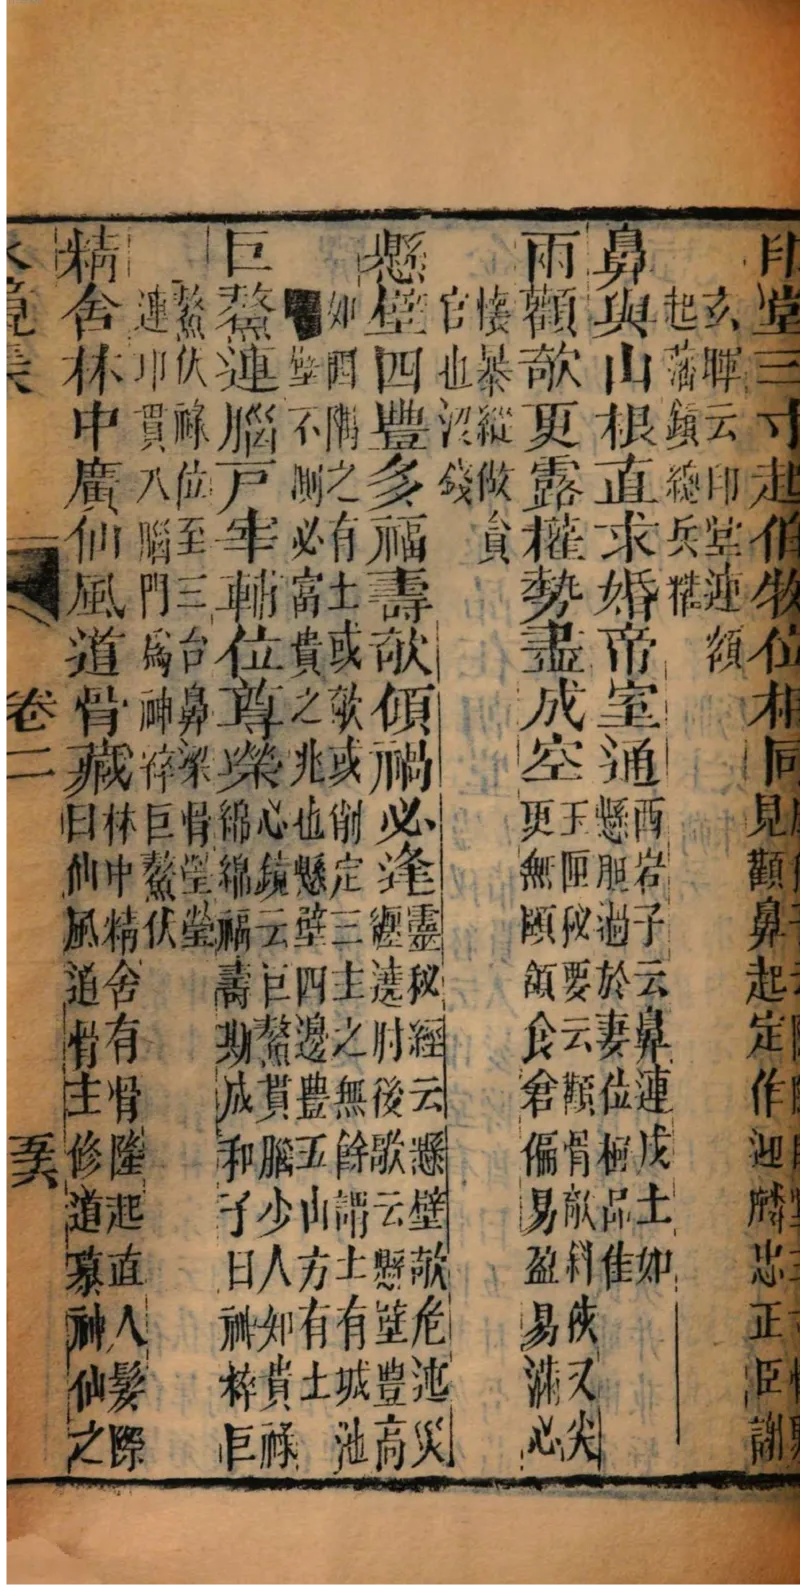 印堂三寸起伯牧位相同
見顴鼻起定作迎麟忠正臣謝
玄暉云印堂連額
起藩鎮總兵權
鼻與山根直求婚帝室通
酉岩子云鼻連戊土如
懸胆過於妻位極品佳
兩顴欹更露權勢盡成空
玉匣秘要云顴骨欹斜俠又尖
更無頤頷食倉偏易盈易滿心
懷暴縱做貟
官也没錢
懸壁四豐多福壽欹傾禍必逢
靈秘經云懸壁欹危迍災
纒遶肘後歌云懸壁豐高
如四隅之有土或欹或削定三主之無餘謂土有城池
壁不測必富貴之兆也懸壁四邊豊五山方有土
巨鰲連腦戸宰輔位尊榮
心鏡云巨鰲貫腦少人如貴祿
綿綿福壽期成和子曰神粹巨
鰲伏祿位至三台鼻梁骨瑩瑩
連印貫入腦門為神粹巨鰲伏
精舍林中廣仙風道骨藏
林中精舍有骨隆起直入髮際
曰仙風道骨主修道慕神仙之
水鏡集
卷二
五六